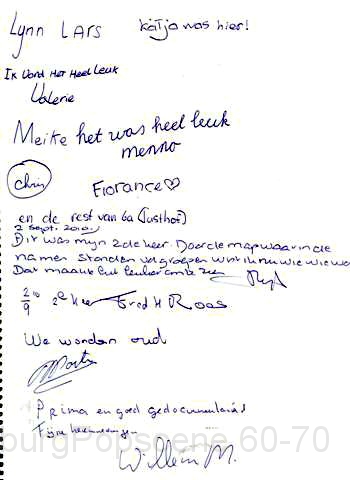 Lynn Lars
Katja was hier!
Ik vond het heel leuk
Valerie
Meike het was heel leuk
menno
Chris
Florance♡
en de rest van 6a (Justhof)
2 sept. 2010.
Dit was mijn 2de keer. Door de map waarin de
namen stonden vd groepen wie wie
Dat maakt het leuker om te zien
2/9 2e keer Fred H Roos
We worden oud
Prima en goed gedocumenteerd
Fijne herinneringen
Willem M.
burgPopscene 60-70